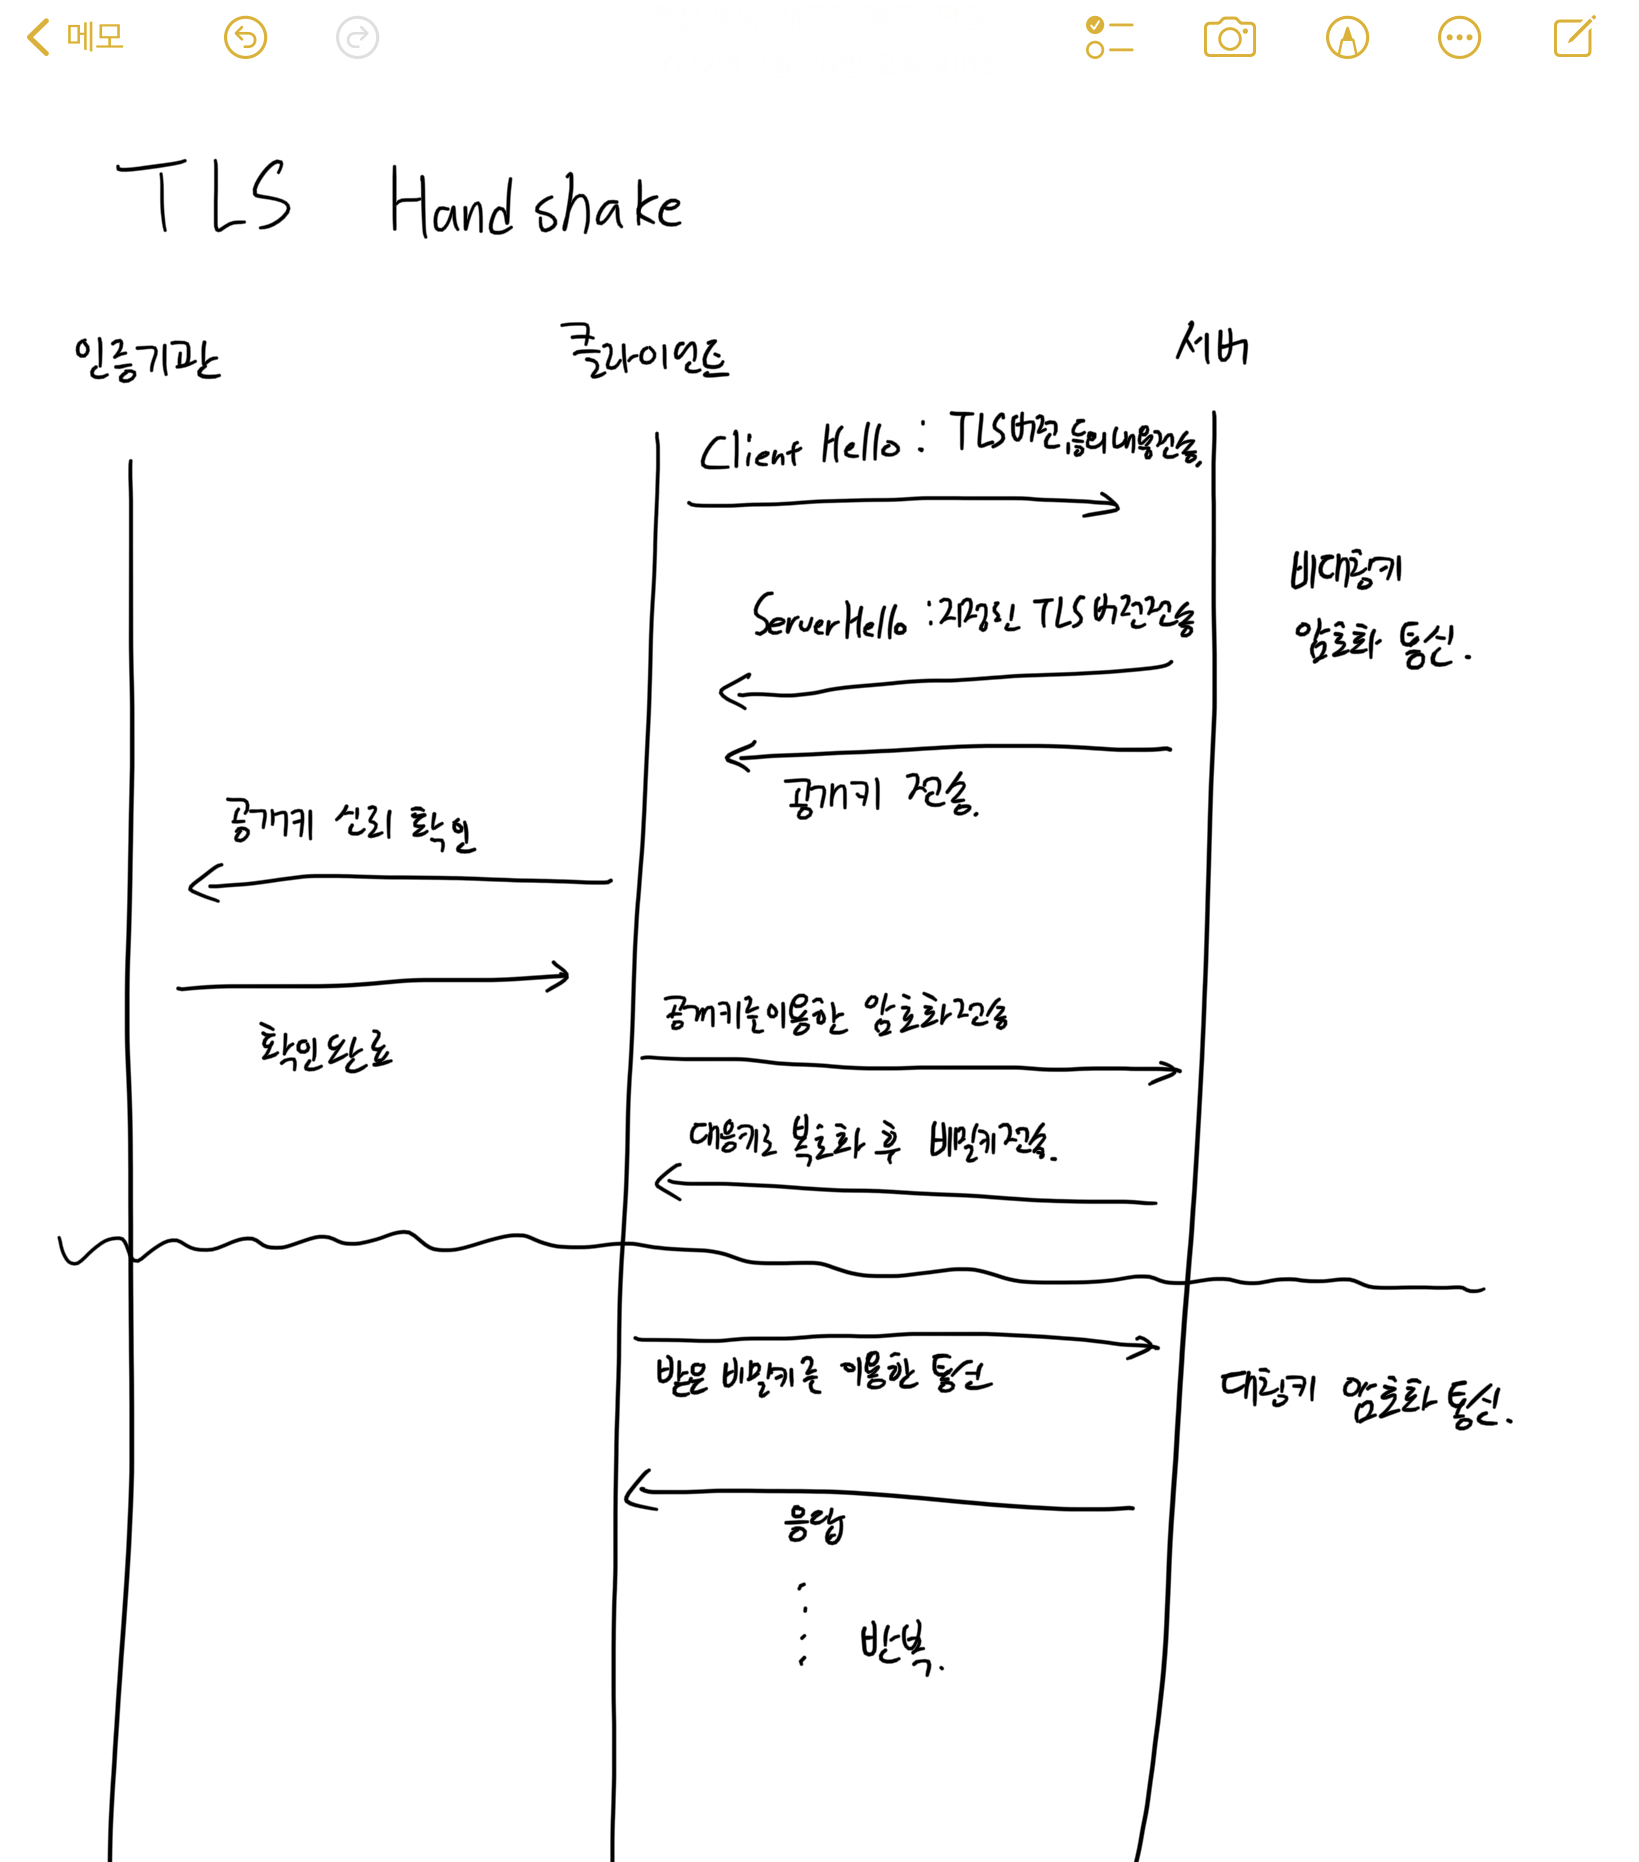 메모
TLS Handshake
인증기관
클라이언트
서버
Client Hello : TLS버전, 등의 내용전송.
비대칭키
암호화 통신.
ServerHello : 지정된 TLS 버전전송
공개키 전송.
공개키 신뢰 확인
확인완료
공개키를이용한 암호화전송
대응키로 복호화 후 비밀키전송.
받은 비밀키를 이용한 통신
대칭키 암호화 통신.
응답
반복.